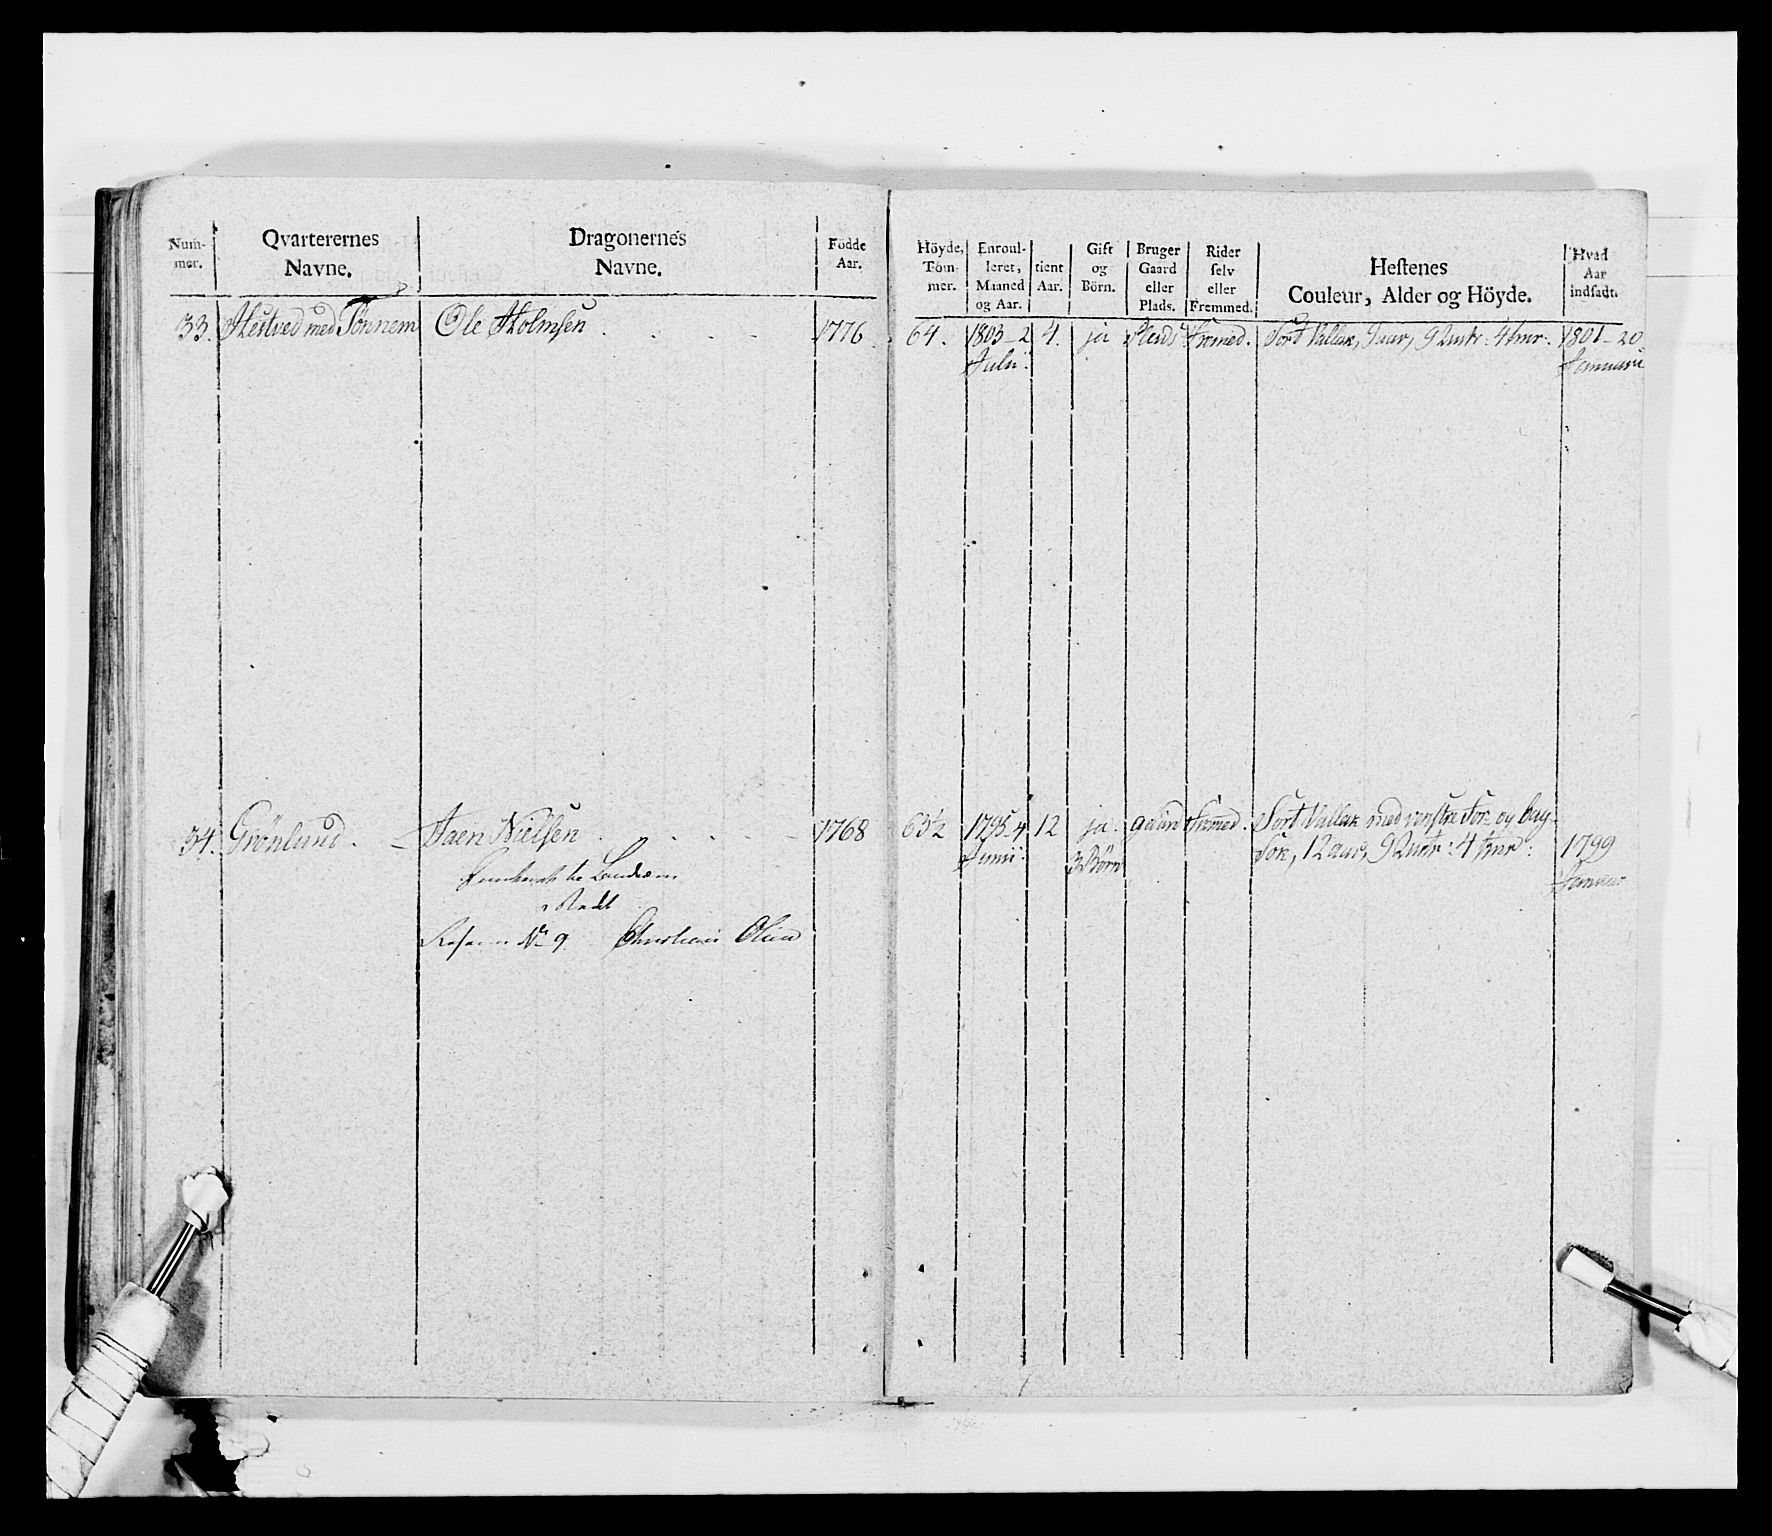 Num-
mer.
Qvarterernes
Navne.
Dragonernes
Navne.
Födde
Aar.
Höyde,
Tom-
mer.
Enroul-
leret,
Maaned
og Aar.
tient
Aar.
Gift
og
Börn.
Bruger
Gaard
eller
Plads.
Rider
selv
eller
Fremmed.
Hestenes
Couleur, Alder og Höyde.
Hvad
Aar
indsadt.
33. Hestved med Tönnem Ole Holmsen 1776 64. 1803 - 2 4. ja Plads Fremed. Sort Vallak, 9 aar, 9 Qvart: 4 tmr: 1801 - 20
Julii. Januarii
34. Grönlund. Faen Nielsen 1768 63½ 1795 4 12 ja. gaard Fremed. Sort Vallak med venstre For- og bag-
Junii. 3 Börn Fok, 12 aar, 9 Qvart: 4 tmr: 1799
Januar
No 9. Christian Olsen